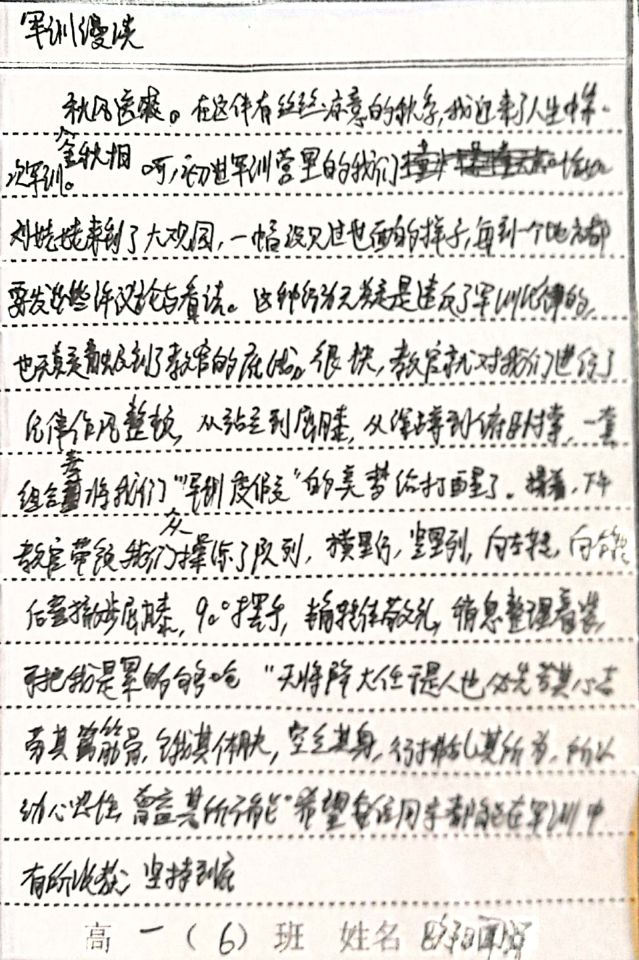 军训漫谈
秋风送爽。在这伴有丝丝凉意的秋季,我迎来了人生中第一
次军训。金秋相 呵,初进军训营里的我们
刘姥姥来到了大观园,一幅没见过世面的样子,每到一个地方都
要发出些许议论与看法。这种行为无疑是违反了军训纪律的,
也无疑是触及到了教官的底线。很快,教官就对我们进行了
纪律作风整顿,从站立到屈膝,从深蹲到俯卧撑,一套
组合拳将我们"军训度假"的美梦给打醒了。接着,下午
教官带领我们众操练了队列,横里行,竖里列,向左转,向右转
后 摆 步屈膝,90°摆手, 敬礼,稍息整理着装,
可把我是累的够呛 "天将降大任于是人也必先苦其心志
劳其筋骨,饿其体肤,空乏其身,行拂乱其所为,所以
动心忍性,曾益其所不能"希望每位同学都能在军训中
有所收获,坚持到底
高一(6)班 姓名